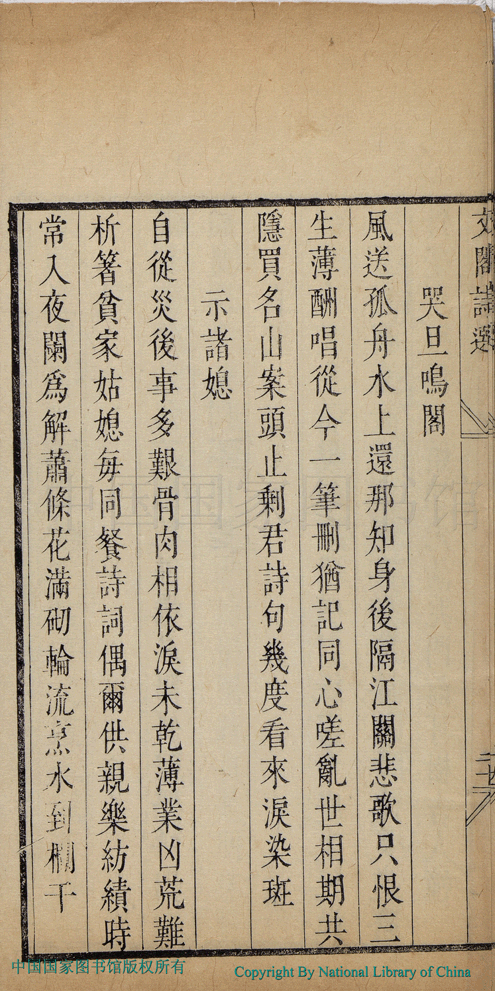 文閣詩選
哭旦鳴閣
風送孤舟水上還那知身後隔江關悲歌只恨三
生薄酬唱從今一筆刪猶記同心嗟亂世相期共
隱買名山案頭止剩君詩句幾度看來淚染斑
示諸媳
自從災後事多艱骨肉相依淚未乾薄業凶荒難
析箸貧家姑媳每同餐詩詞偶爾供親樂紡績時
常入夜闌為解蕭條花滿砌輪流烹水到欄干
中国国家图书馆版权所有
Copyright By National Library of China